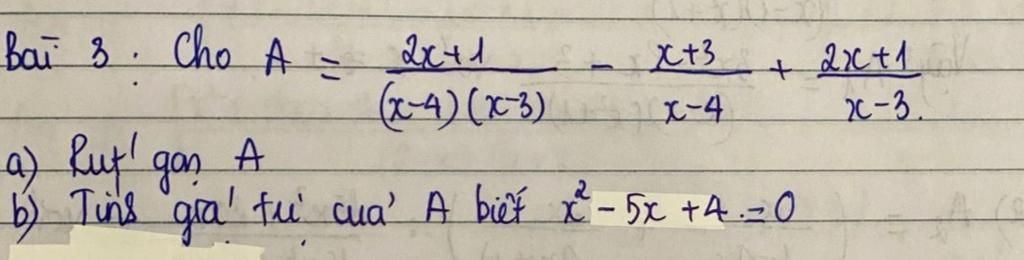 Bài 3. Cho A = \frac{2x+1}{(x-4)(x-3)} - \frac{x+3}{x-4} + \frac{2x+1}{x-3}.
a) Rút gọn A
b) Tính giá trị của A biết x² - 5x + 4 = 0